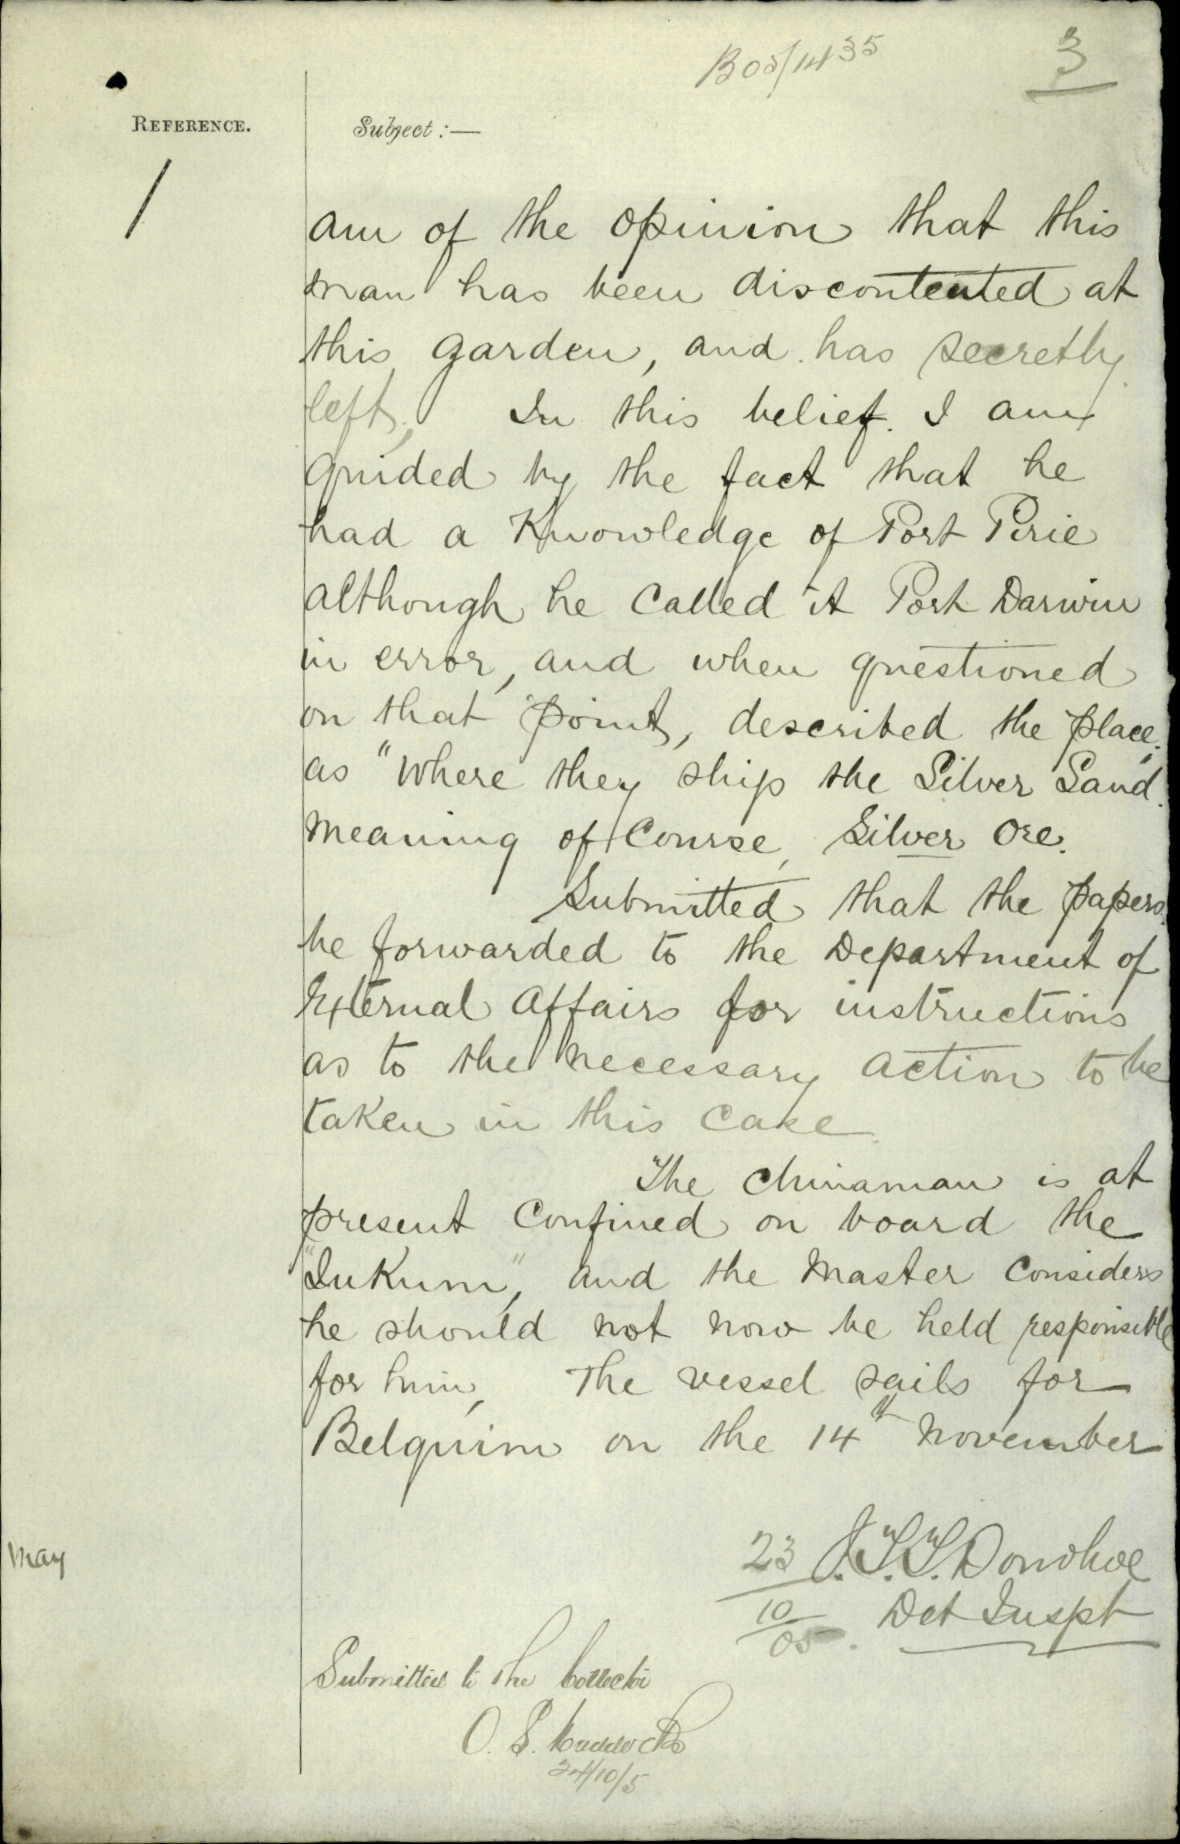 B05/1435
3
REFERENCE.
Subject :—
am of the opinion that this
man has been discontented at
this garden, and has secretly
left. In this belief. I am
guided by the fact that he
had a Knowledge of Port Pirie
although he called it Port Darwin
in error, and when questioned
on that point, described the place,
as "where they ship the Silver Sand.
meaning of Course, Silver Ore.
Submitted that the papers.
be forwarded to the Department of
External Affairs for instructions
as to the necessary action to be
taken in this case.
The Chinaman is at
present Confined on board the
"Inkum", and the Master Considers
he should not now be held responsible
for him, The vessel sails for
Belguim on the 14th November
May
23 Donohoe
10 Det Inspt
05.
Submitted to the Collector
O. S. Maddocks
24/10/5